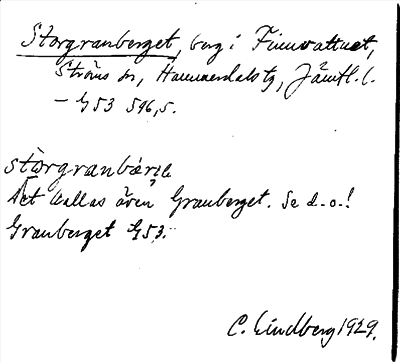 Storgranberget, berg i Finnvattnet,
Ströms sn, Hammerdals tg, Jämtl. l.
– G53 596,5.
stòrgranbárjɛ
Det kallas även Granberget. Se d. o.!
Granberget G53.
C. Lindberg 1929.